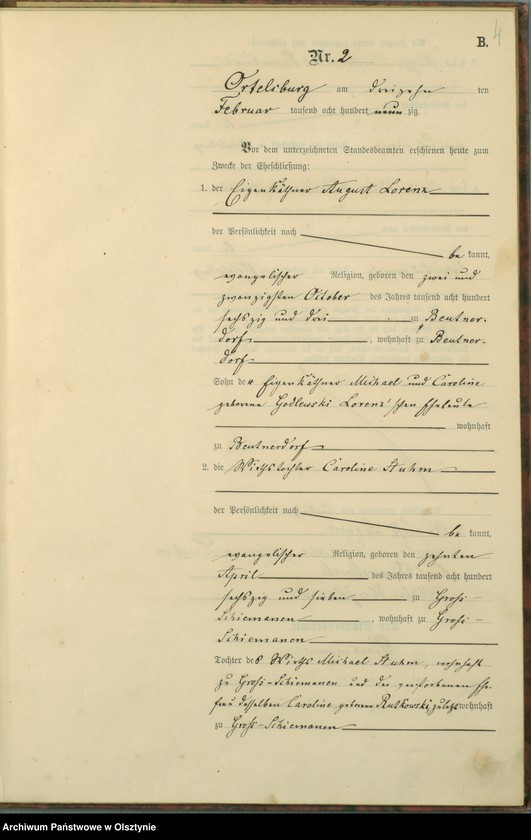 B.
4
Nr. 2
Ortelsburg am dreizehn ten
Februar tausend acht hundert neun zig.
Vor dem unterzeichneten Standesbeamten erschienen heute zum
Zwecke der Eheschließung:
1. der Eigenkäthner August Lorenz
der Persönlichkeit nach
be kannt,
evangelischer Religion, geboren den zwei und
zwanzigsten October des Jahres tausend acht hundert
sechszig und drei zu Beutner-
dorf, wohnhaft zu Beutner-
dorf
Sohn der Eigenkäthner Michael und Caroline
geborene Godlewski Lorenz'schen Eheleute
wohnhaft
zu Beutnerdorf
2. die Wirthstochter Caroline Stuhm
der Persönlichkeit nach
be kannt,
evangelischer Religion, geboren den zehnten
April des Jahres tausend acht hundert
sechszig und sieben zu Groß-
Schiemanen, wohnhaft zu Groß-
Schiemanen
Tochter des Wirths Michael Stuhm, wohnhaft
zu Groß-Schiemanen und der verstorbenen Ehe-
frau desselben Caroline, geborene Rutkowski, zuletzt wohnhaft
zu Groß-Schiemanen
Archiwum Państwowe w Olsztynie